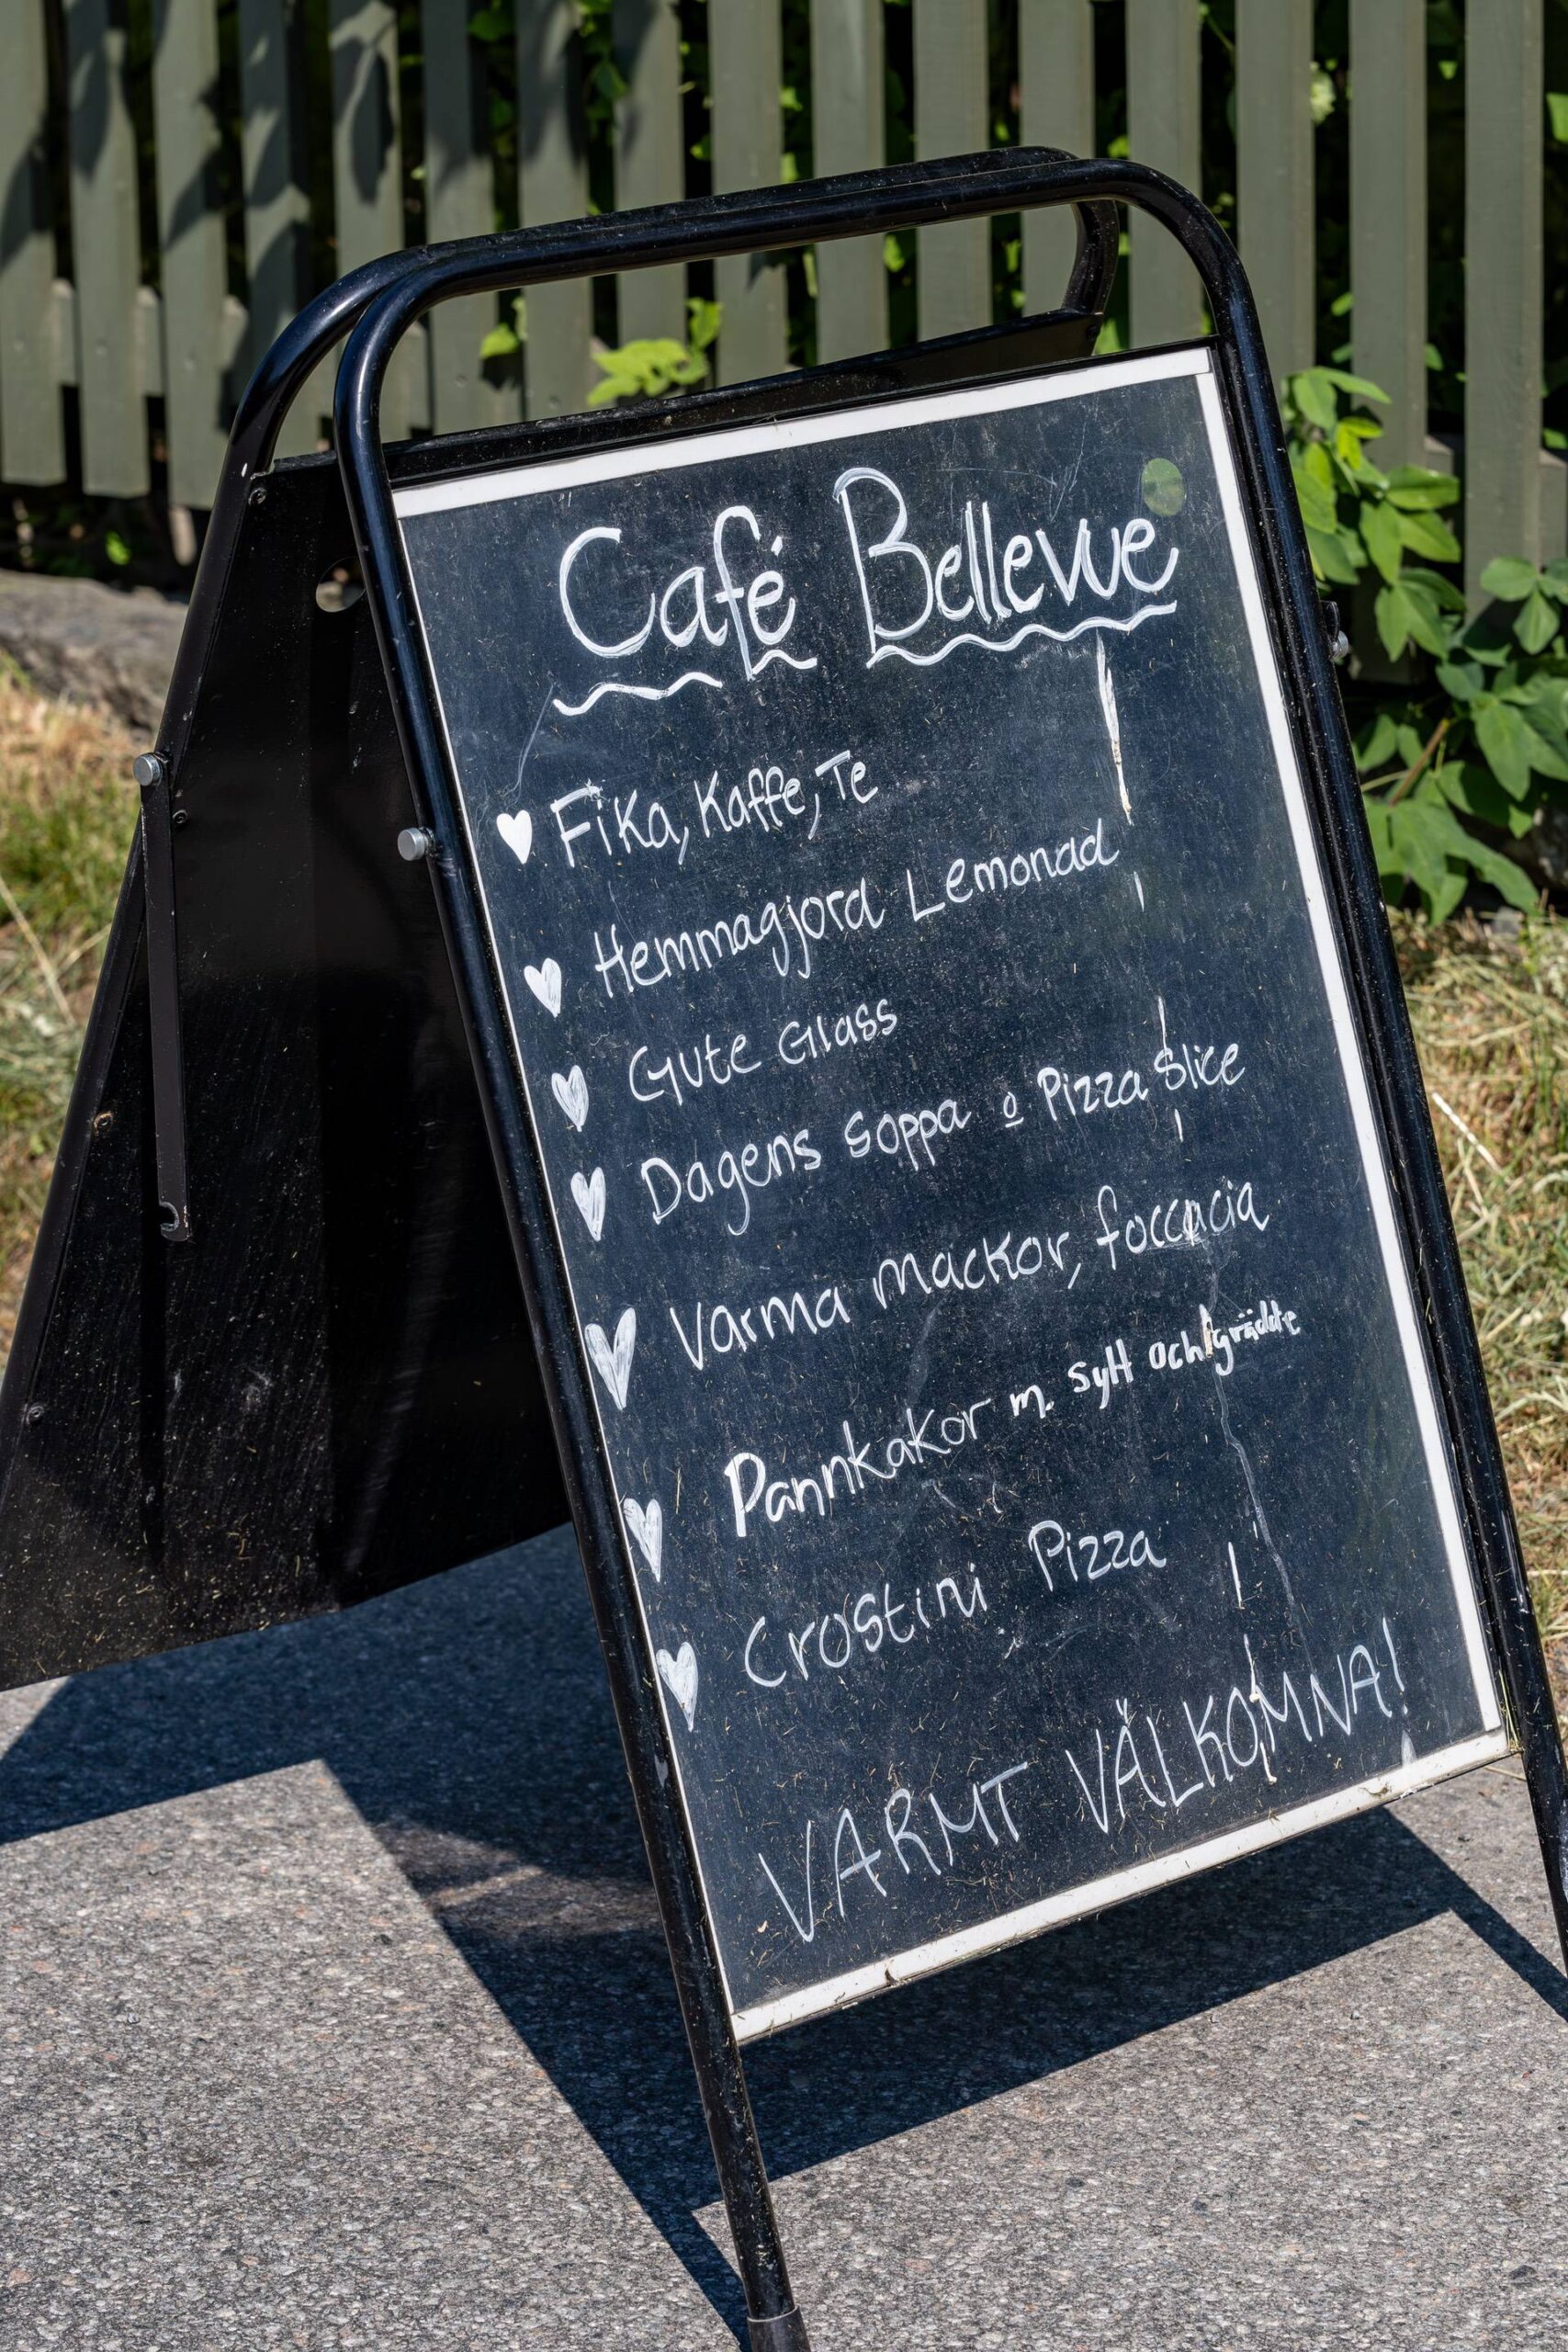 Café Bellevue
Fika, Kaffe, Te
Hemmagjord Lemonad
Gute Glass
Dagens Soppa o Pizza Slice
Varma Mackor, foccacia
Pannkakor m. Sylt och grädde
Crostini Pizza
VARMT VÄLKOMNA!